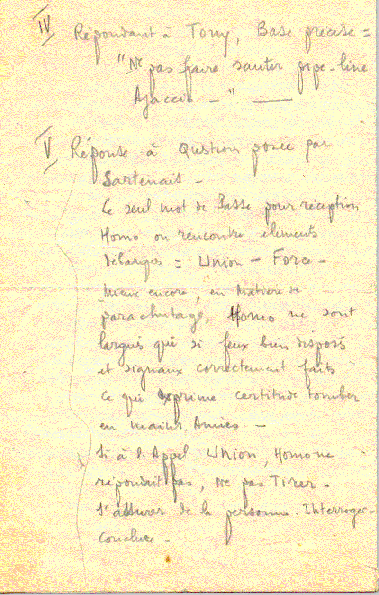 IV Répondant à Tony, Base précise =
"Ne pas faire sauter pipe-line
Ajaccio - " —
V Réponse à Qustion posée par
Sartenais -
Le seul mot de Passe pour réception
Homo ou rencontre elements
débarqués = Union - Force -
Mieux encore, en Matière de
parachutage, Homo ne sont
largués que si feux bien disposés
et signaux correctement faits
ce qui exprime certitude tomber
en mains Amies -
Si à l'Appel Union, Homo ne
répondrait pas, Ne pas Tirer -
S'assurer de la personne. Interroger
Conclure -